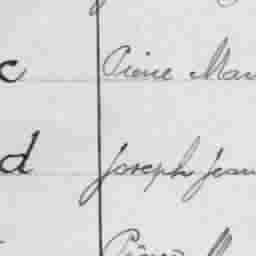 c Pierre Mar
d Joseph Jean
Pierre M